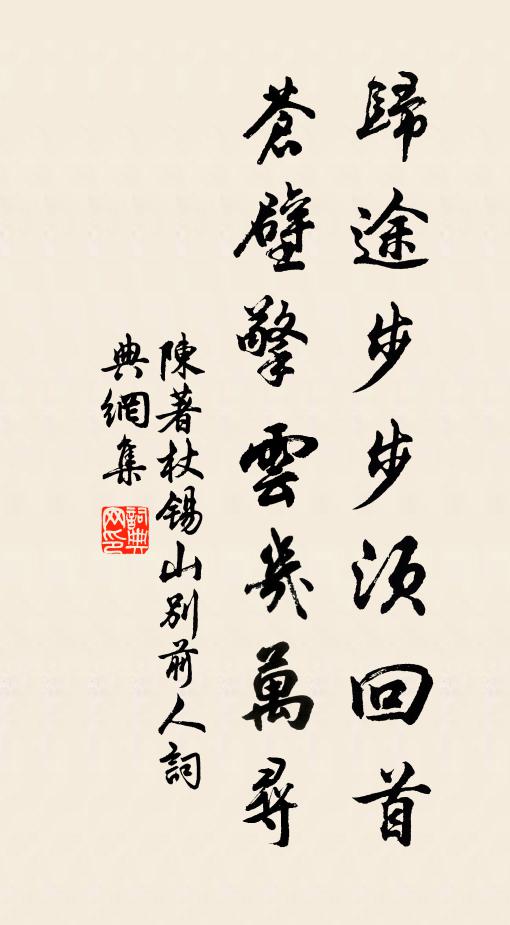 歸途步步須回首
蒼壁擎雲幾萬尋
陳著杖錫山別前人詞
典網集
詞典网印